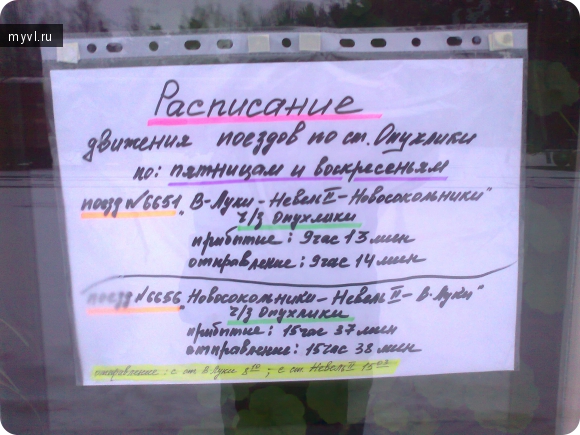 myvl.ru
Расписание
движения поездов по ст. Опухлики
по: пятницам и воскресеньям
поезд №6651 „В-Луки-Невель II-Новосокольники"
ч/з Опухлики
прибытие: 9час 13 мин
отправление: 9час 14 мин
поезд №6656 „Новосокольники-Невель II-В.Луки"
ч/з Опухлики
прибытие: 15час 37 мин
отправление: 15час 38 мин
отправление: с ст В.Луки ; с ст. Невель II